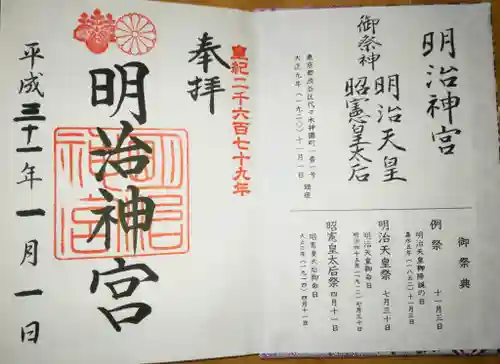 明治神宮
御祭神
明治天皇
昭憲皇太后
東京都渋谷区代々木神園町一番一号
大正九年(一九二〇)十一月一日 鎮座
御祭典
例祭 十一月三日
明治天皇御降誕の日
嘉永五年(一八五二)十一月三日
明治天皇祭 七月三十日
明治天皇御命日
明治四十五年(一九一二)七月三十日
昭憲皇太后祭 四月十一日
昭憲皇太后御命日
大正三年(一九一四)四月十一日
皇紀二千六百七十九年
奉拝
明治神宮
平成三十一年一月一日